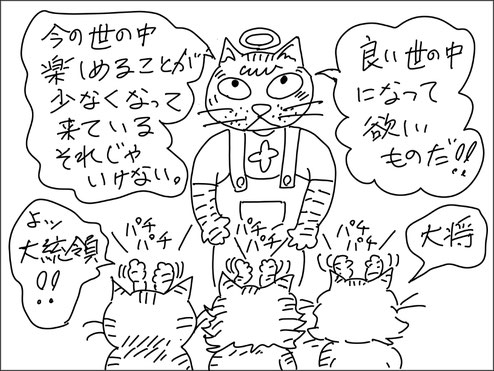 今の世の中
楽しめることが
少なくなって
来ている
それじゃ
いけない。
良い世の中
になって
欲しい
ものだ!!
ヨッ
大統領
!!
大将
パチ
パチ
パチ
パチ
パチ
パチ